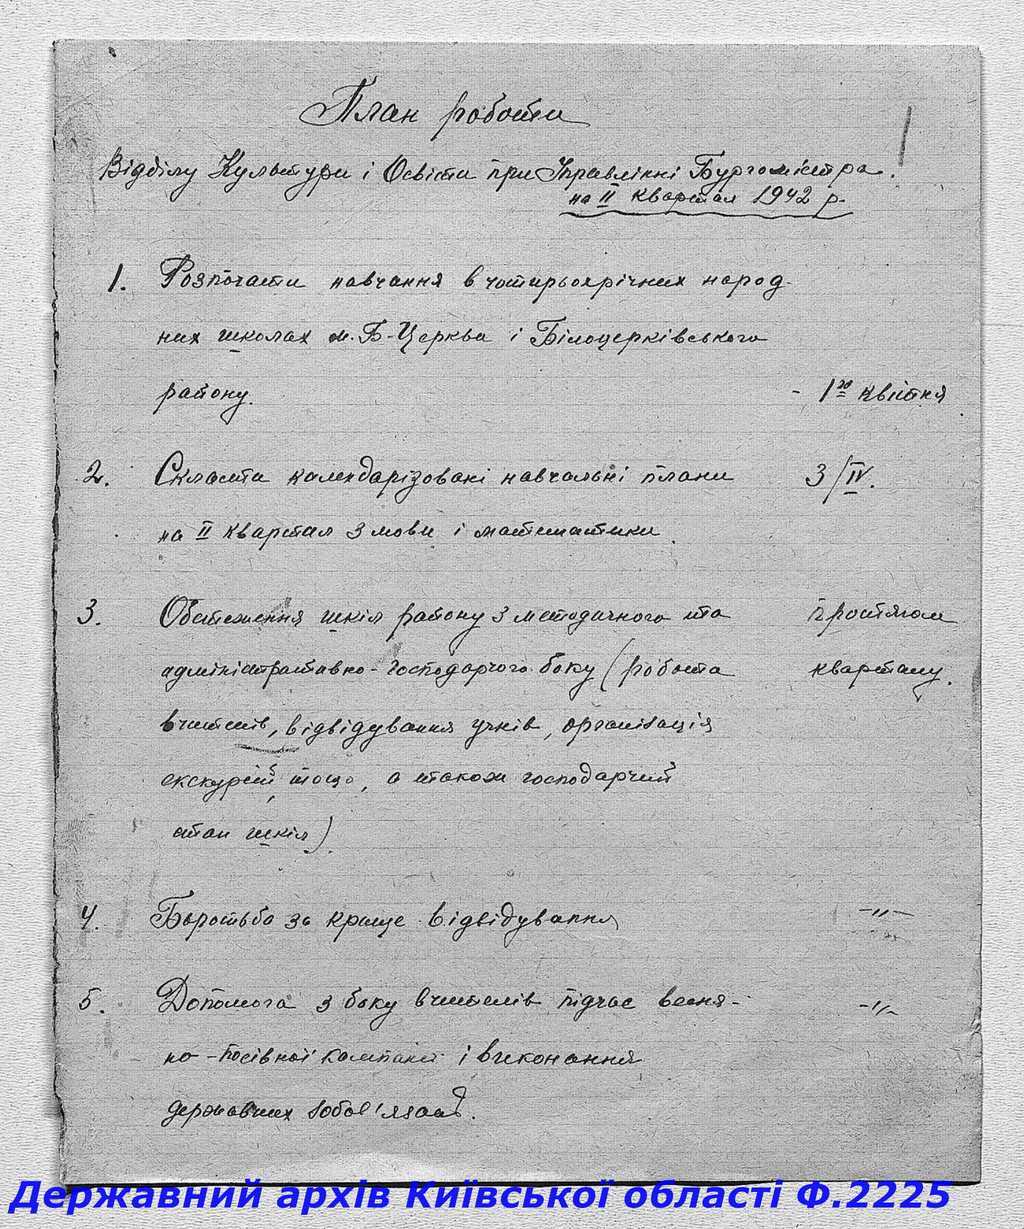 План роботи
Відділу Культури і Освіти при Управлінні Бургомістра.
на II квартал 1942 р.
1. Розпочати навчання в чотирьохрічних народ-
них школах м. Б-Церкви і Білоцерківського
району. - 1го квітня
2. Скласти календарізовані навчальні плани 3/IV.
на II квартал з мови і математики.
3. Обстеження шкіл району з методичного та протягом
адміністративно-господарчого боку (робота кварталу.
вчителів, відвідування учнів, організація
екскурсій, тощо, а також господарчий
стан шкіл).
4. Боротьба за краще відвідування -"-
5. Допомога з боку вчителів підчас весня- -"-
но-посівної кампанії і виконання
державних зобов'язань.
Державний архів Київської області Ф.2225